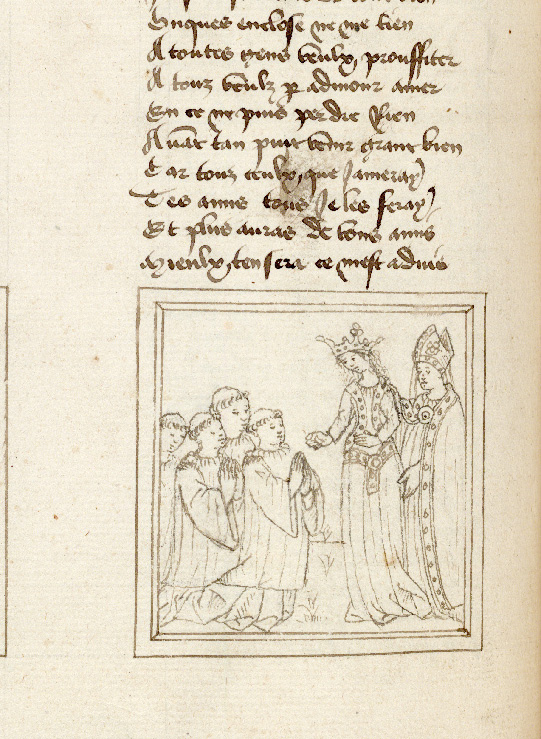 Unques enclose ne me tien
A toutes gens veulx, prouffiter
A touz veulz p admour amer
En ce ne puis perdre Rien
Avāt tan puit venir grant bien
Car touz ceulx, que Jameray
Tes amis tous Je les feray
Et plus auras de bons amis
Mieulx, ten sera ce mest aduis